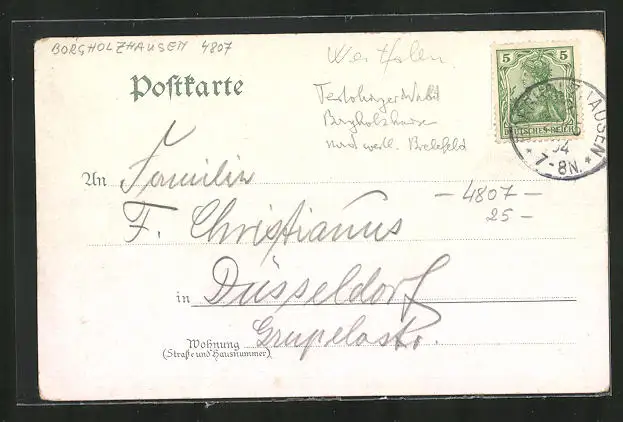 BORGHOLZHAUSEN 4807
Westfalen
Postkarte
Teutoburger Wald
Borgholzhausen
nordwestl. Bielefeld
5 5
DEUTSCHES REICH
HAUSEN
04
* 7-8N. *
An Familie
F. Christianus
– 4807 –
25 –
in Düsseldorf
Grupellostr.
Wohnung
(Straße und Hausnummer)